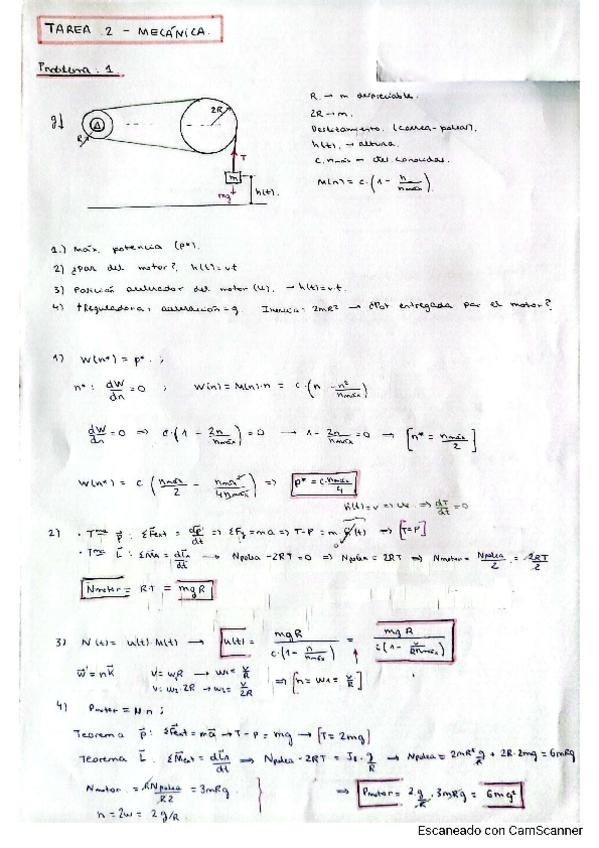 TAREA 2 - MECÁNICA.
Problema 1
R → m despreciable.
2R → m.
Deslizamiento (correa-polea).
h(t) → altura.
c, nmáx → del conocidas.
M(n) = c·(1 - n/nmáx).
g↓
R
2R
T
m
mg
h(t).
1.) Máx. potencia (p*).
2) ¿Par del motor?, h(t)=vt
3) Posición acelerador del motor (u), → h(t)=v·t.
4) +Reguladora: aceleración=g. Inercia: 2mR² → ¿Pot entregada por el motor?
1) W(n*) = p*. ;
n*: dW/dn = 0 ; W(n) = M(n)·n = c·(n - n²/nmáx)
dW/dn = 0 ⇒ c·(1 - 2n/nmáx) = 0 → 1 - 2n/nmáx = 0 → [n* = nmáx/2]
W(n*) = c (nmáx/2 - nmáx²/4nmáx) ⇒ p* = c·nmáx/4
2) · Tma p⃗: ΣFext = dp⃗/dt ⇒ ΣFy = ma ⇒ T-P = m·ḧ(t) ⇒ [T=P]
· Tma L⃗: = dL⃗/dt → Npolea - 2RT = 0 ⇒ Npolea = 2RT ⇒ Nmotor = Npolea/2 = 2RT/2
Nmotor = R·T = mgR
3) N(t) = u(t)·M(t) → u(t) = mgR / c·(1 - n/nmáx) = mgR / c(1 - v/Rnmáx)
w⃗ = nK⃗ v = w₁R → w₁ = v/R ⇒ [n = w₁ = v/R]
v = w₂·2R → w₂ = v/2R
4) Pmotor = N·n ;
Teorema p⃗: ΣFext = ma⃗ → T-P = mg → [T=2mg]
Teorema L⃗: ΣMext = dL⃗/dt → Npolea - 2RT = · g/R → Npolea = 2mR² g/R + 2R·2mg = 6mRg
Nmotor = = 3mRg
n = 2w = 2 g/R
⇒ Pmotor = 2 g/R · 3mRg = 6mg²
Escaneado con CamScanner